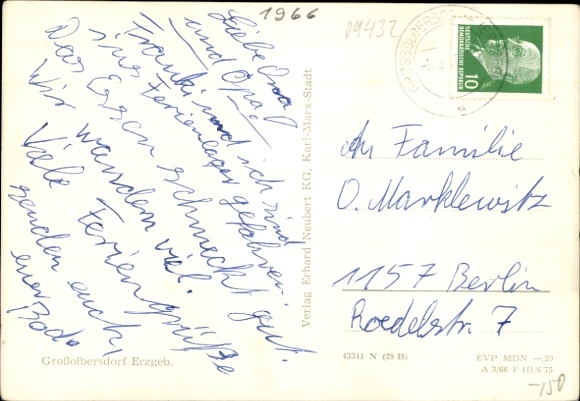 1966
09432
Liebe Oma
und Opa!
Franki und ich sind
ins Ferienlager gefahren.
Das Essen schmeckt gut.
Wir wandern viel.
Viele Feriengrüße
senden euch,
euer Bodo
Großolbersdorf Erzgeb.
Verlag Erhard Neubert KG, Karl-Marx-Stadt
DEUTSCHE
DEMOKRATISCHE
REPUBLIK
10
An Familie
O. Marklewitz
1157 Berlin
Roedelstr. 7
43341 N (29 B)
EVP MDN —.20
A 3/66 F III/6/75
-150